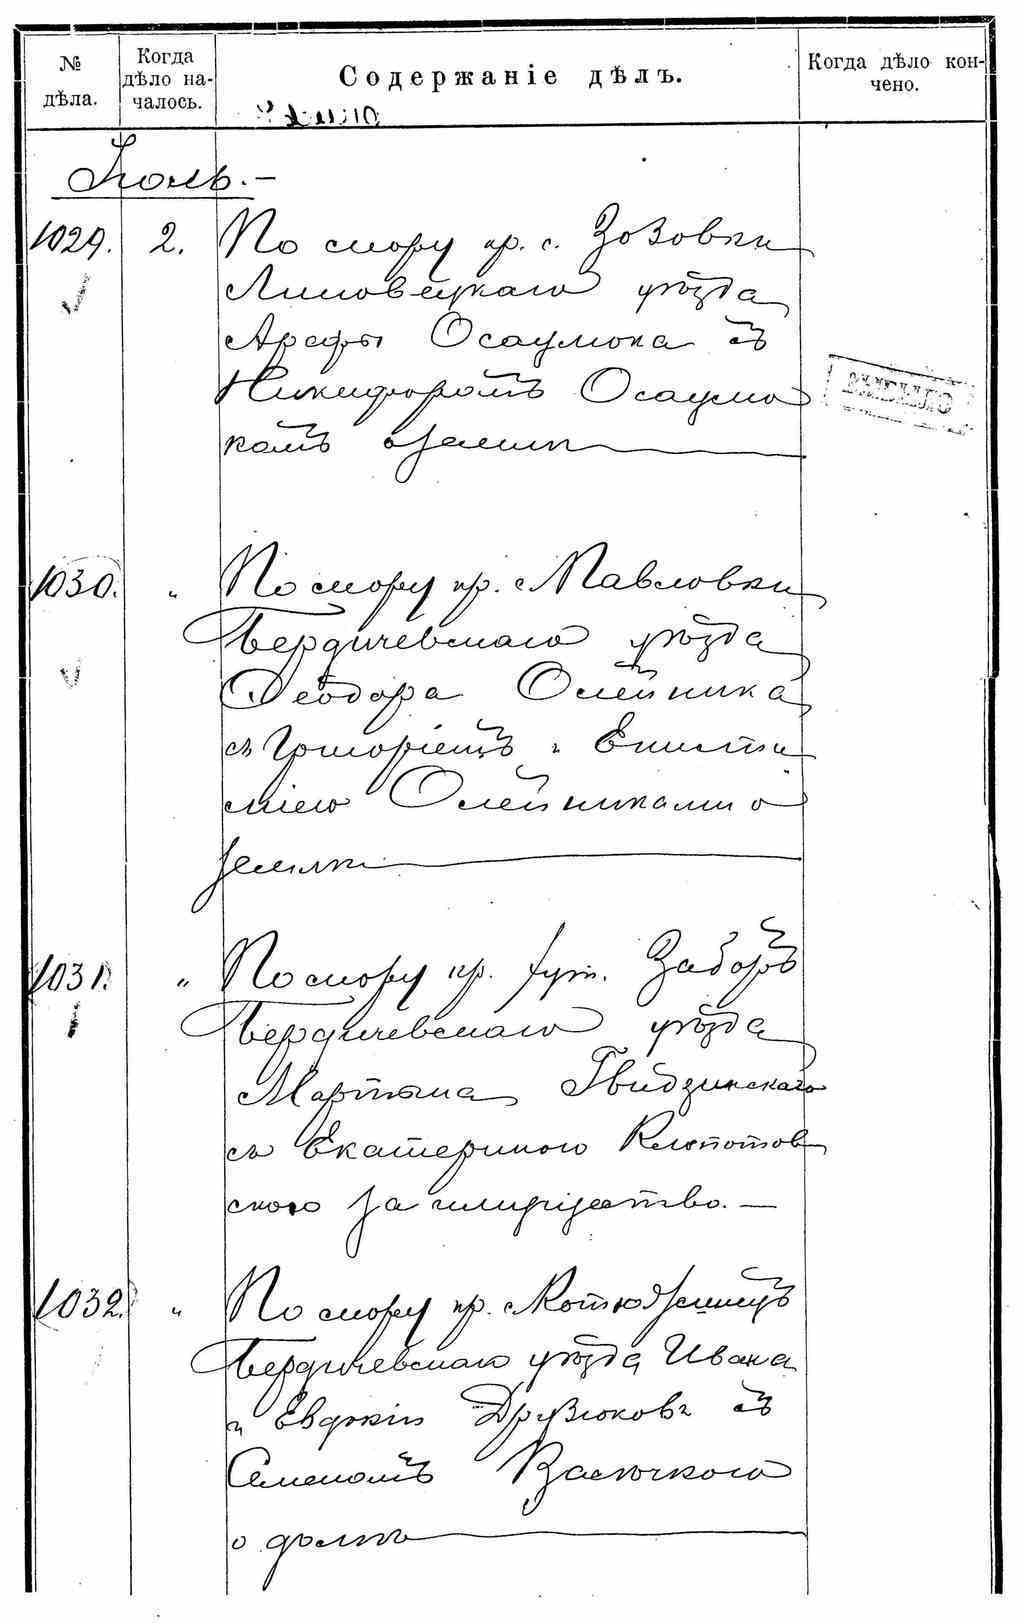 № дѣла.
Когда дѣло началось.
Содержаніе дѣлъ.
Когда дѣло кончено.
Іюль.-
1029. 2. По спору кр. с. Зозовки
Липовецкаго уѣзда
Арефы Осаулюка съ
Никифоромъ Осаулю
комъ о землѣ
ВЫБЫЛО
1030. " По спору кр. с. Павловки
Бердичевскаго уѣзда
Ѳеодора Олейника
съ Григоріемъ и Еписти
міею Олейниками о
землѣ
1031. " По спору кр. хут. Заборъ
Бердичевскаго уѣзда
Мартына Гвидзинскаго
съ Екатериною Клопотов
скою за
1032. " По спору кр. с.
Бердичевскаго уѣзда Ивана
и Евдокіи Друзюковъ съ
Семеномъ
о долгѣ